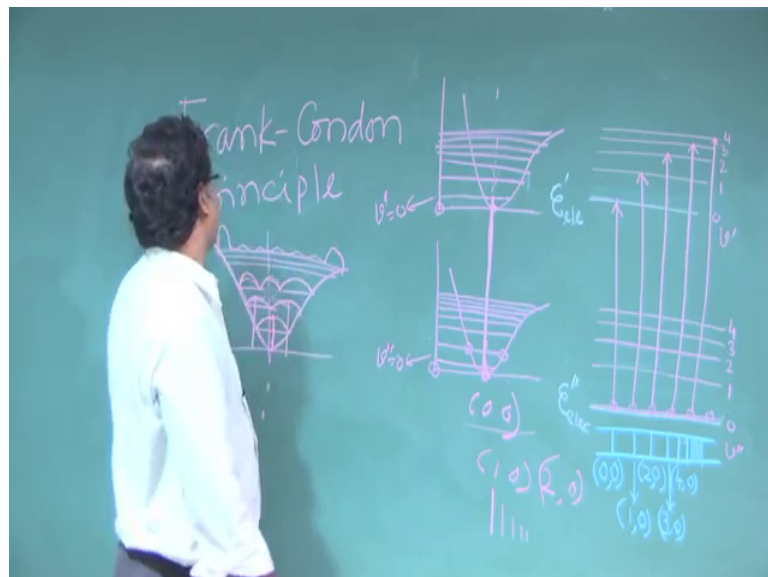 Frank-Condon
Principle
v'=0
v''=0
(0,0)
(1,0) (2,0)
ε'ele
4
3
2
1
0
v'
4
3
2
1
0
ε''elec
v''
(0,0) (2,0) (4,0)
(1,0) (3,0)